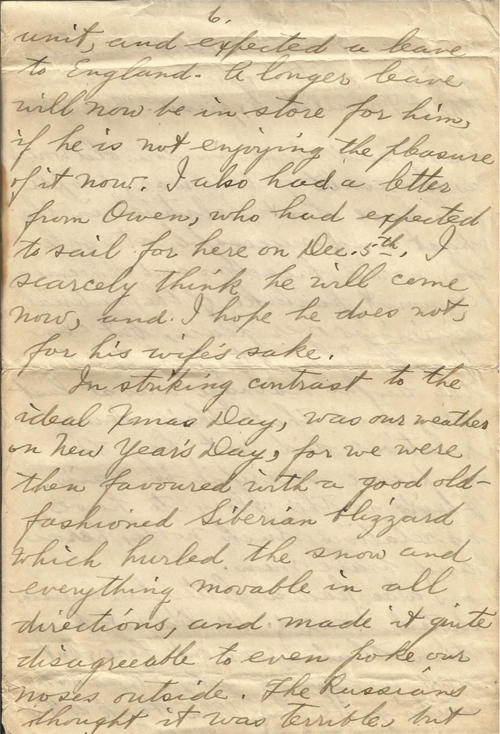 6.
unit, and expected a leave
to England. A longer leave
will now be in store for him,
if he is not enjoying the pleasure
of it now. I also had a letter
from Owen, who had expected
to sail for here on Dec. 5th. I
scarcely think he will come
now, and I hope he does not,
for his wife's sake.
In striking contrast to the
ideal Xmas Day, was our weather
on New Year's Day, for we were
then favoured with a good old-
fashioned Siberian blizzard
which hurled the snow and
everything movable in all
directions, and made it quite
disagreeable to even poke our
noses outside. The Russians
thought it was terrible, but